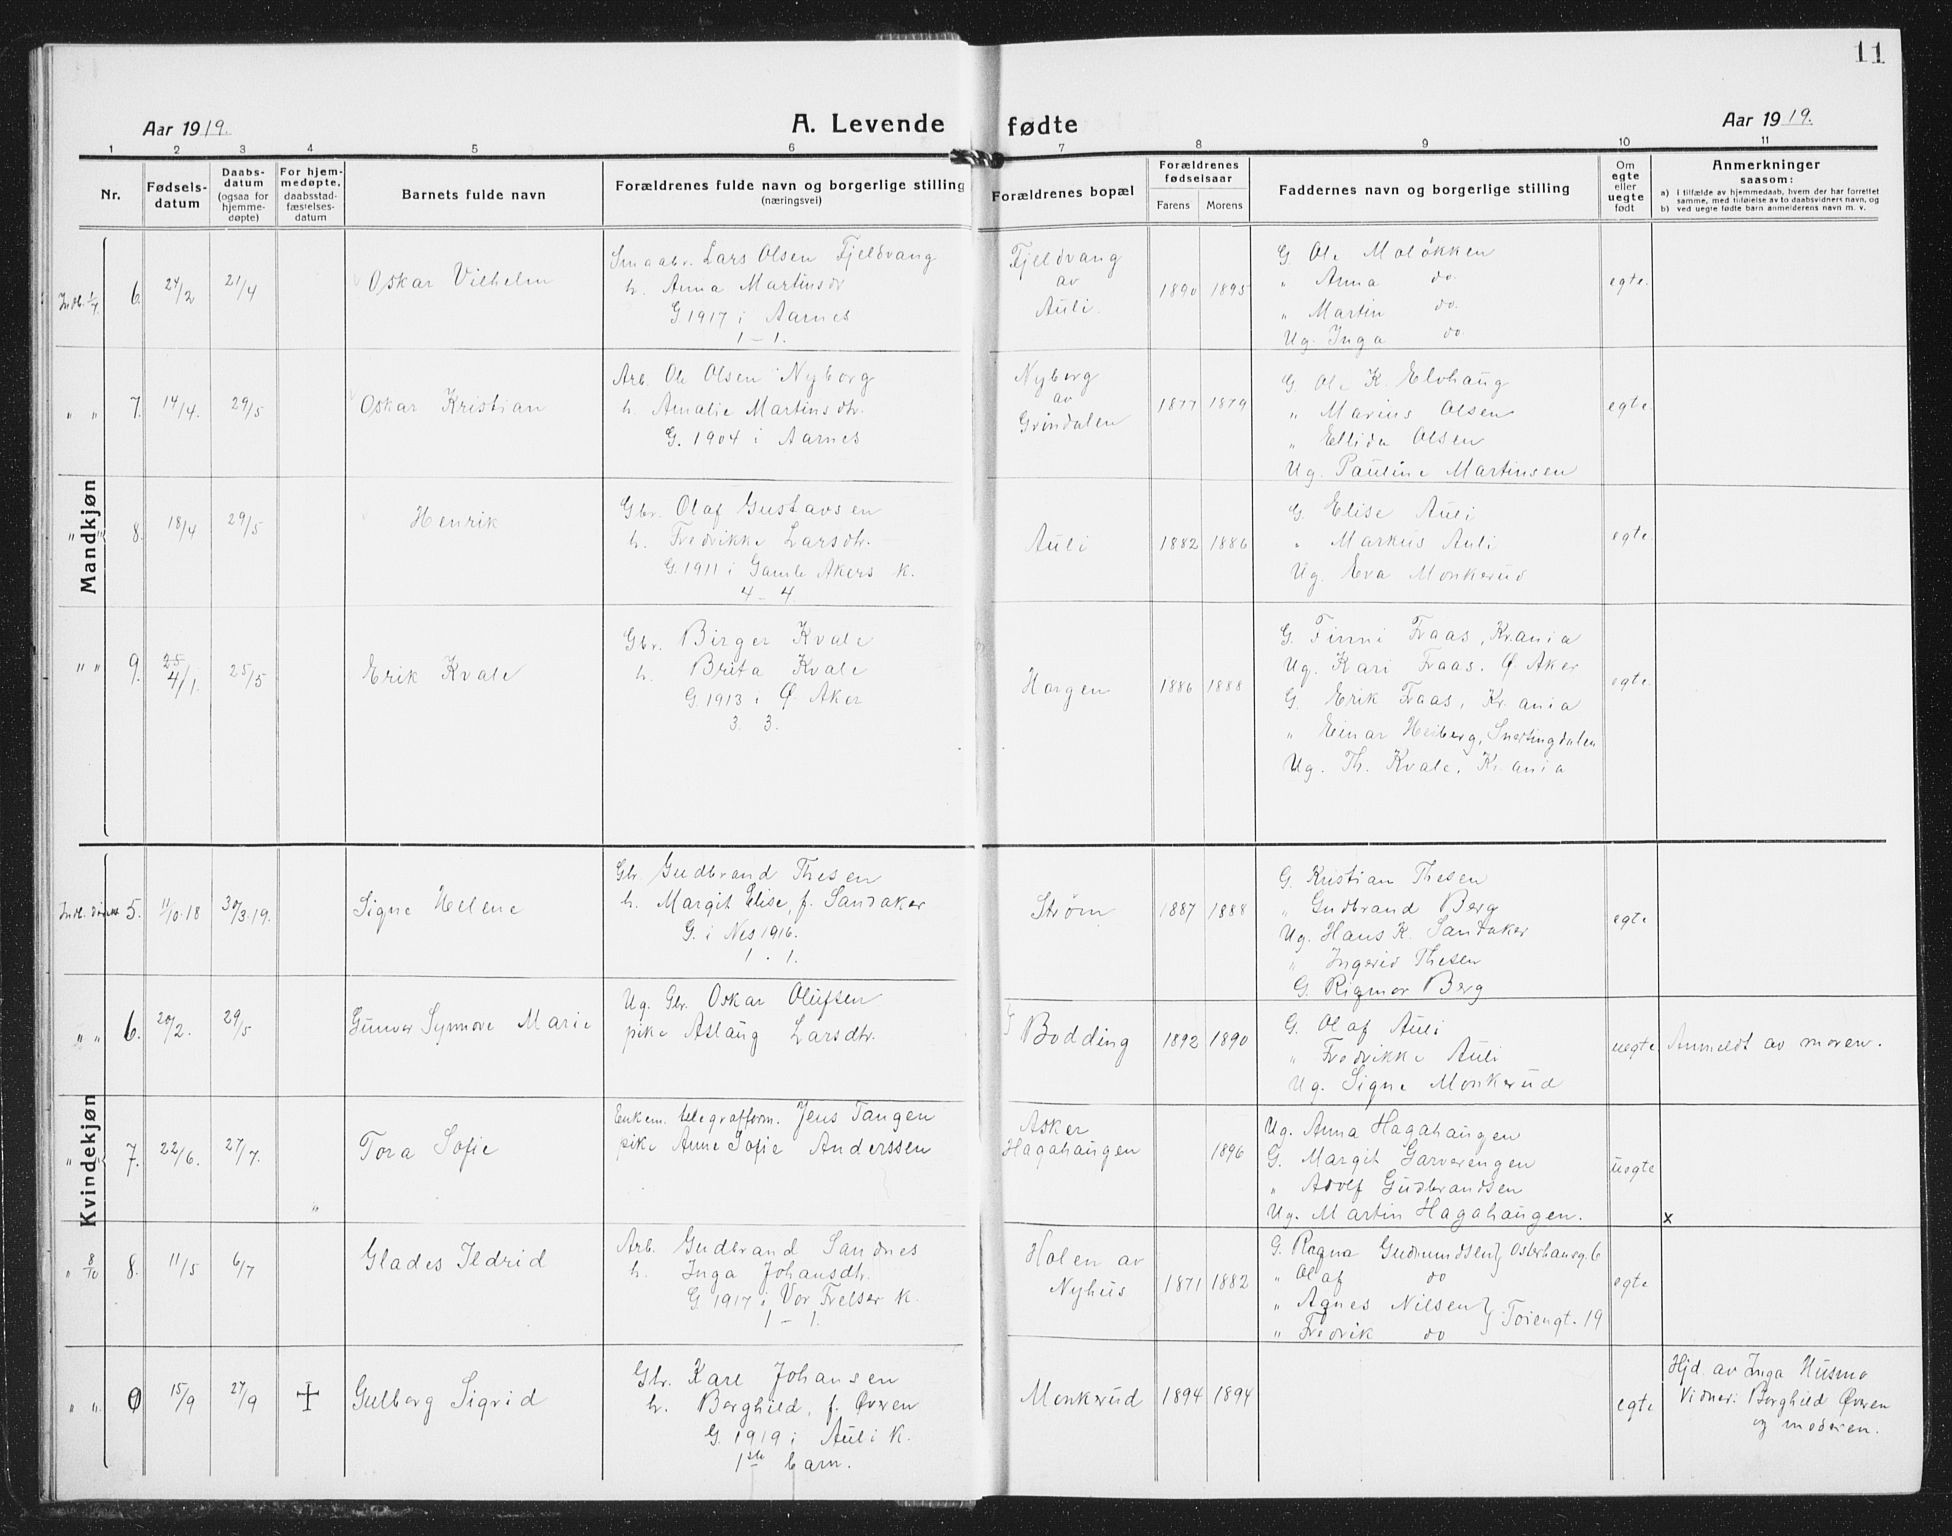 11
Aar 1919.
A. Levende fødte
Aar 1919.
1 2 3 4 5 6 7 8 9 10 11
Nr.
Fødsels-
datum
Daabs-
datum
(ogsaa for
hjemme-
døpte)
For hjem-
medøpte,
daabsstad-
fæstelses-
datum
Barnets fulde navn
Forældrenes fulde navn og borgerlige stilling
(næringsvei)
Forældrenes bopæl
Forældrenes
fødselsaar
Farens Morens
Faddernes navn og borgerlige stilling
Om
egte
eller
uegte
født
Anmerkninger
saasom:
a) I tilfælde av hjemmedaab, hvem der har forrettet
samme, med tilføielse av to daabsvidners navn, og
b) ved uegte fødte barn anmelderens navn m. v.
Mandkjøn
Indb. 1/4 6. 24/2 21/4 Oskar Vilhelm
Smaabr. Lars Olsen Fjeldvang
h. Anna Martinsdr
G 1917 i Aarnes
1 - 1.
Fjeldvang
av
Auli.
1890 1895
G. Ole Moløkken
" Anna do.
" Martin do.
Ug. Inga do
egte.
" " 7. 14/4. 29/5 Oskar Kristian
Arb. Ole Olsen Nyborg
h. Amalie Martinsdtr.
G. 1904 i Aarnes
Nyborg
av
Grindalen
1877 1879
G. Ole K. Elvhaug
" Marius Olsen
" Ellida Olsen
Ug. Pauline Martinsen
egte.
" " 8. 18/4 29/5 Henrik
Gbr. Olaf Gustavsen
h. Fredrikke Larsdtr.
G. 1911 i Gamle Akers k.
4 - 4.
Auli
1882 1886
G. Elise Auli
" Markus Auli
Ug. Eva Monkerud
egte.
" " 9. 25/5 Erik Kvale
Gbr. Birger Kvale
h. Brita Kvale
G. 1913 i Ø. Aker
3. 3.
Horgen
1886 1888
G. Finni Fraas, Kr.ania
Ug. Kari Fraas. Ø. Aker
G. Erik Fraas, Kr.ania
" Einar Heiberg, Snertingdalen
Ug. Th. Kvale, Kr.ania
egte.
Kvindekjøn
5. 11/10.18 30/3.19. Signe Helene
Gbr. Gudbrand Thesen
h. Margit Elise, f. Sandaker
G. i Nes 1916.
1 . 1.
Strøm
1887 1888
G. Kristian Thesen
" Gudbrand Berg
Ug. Hans K. Sandaker
" Ingerid Thesen
G. Rigmor Berg
egte
" " 6. 20/2. 29/5 Gunvor Synnøve Marie
Ug. Gbr. Oskar Olufsen
pike Aslaug Larsdtr.
Bodding
1892 1890
G. Olaf Auli
" Fredrikke Auli
Ug. Signe Monkerud
uegte. Anmeldt av moren.
" " 7. 22/6. 27/7. Tora Sofie
Enkem. telegrafform. Jens Tangen
pike Anne Sofie Anderssen
Asker
Hagahaugen
1896
Ug. Anna Hagahaugen
G. Margit Garverengen
" Adolf Gudbrandsen
Ug. Martin Hagahaugen.
uegte
x
" 8/10 8. 11/5 6/7 Glades Ildrid
Arb. Gudbrand Sandnes
h. Inga Johansdtr.
G 1917 i Vor Frelser k.
1 - 1.
Holen av
Nyhus
1871 1882
G. Ragna Gudmundsen } Osterhausg. 6
" Olaf do
" Agnes Nilsen } Toiengt. 19
" Fredrik do
egte
" " 15/9 27/9 Gulborg Sigrid
Gbr. Kare Johansen
h. Borghild, f. Øveren
G. 1919 i Auli k.
1ste barn.
Monkerud
1894 1894
egte
Hjd. av Inga Husmo
Vidner: Borghild Øveren
og moderen.